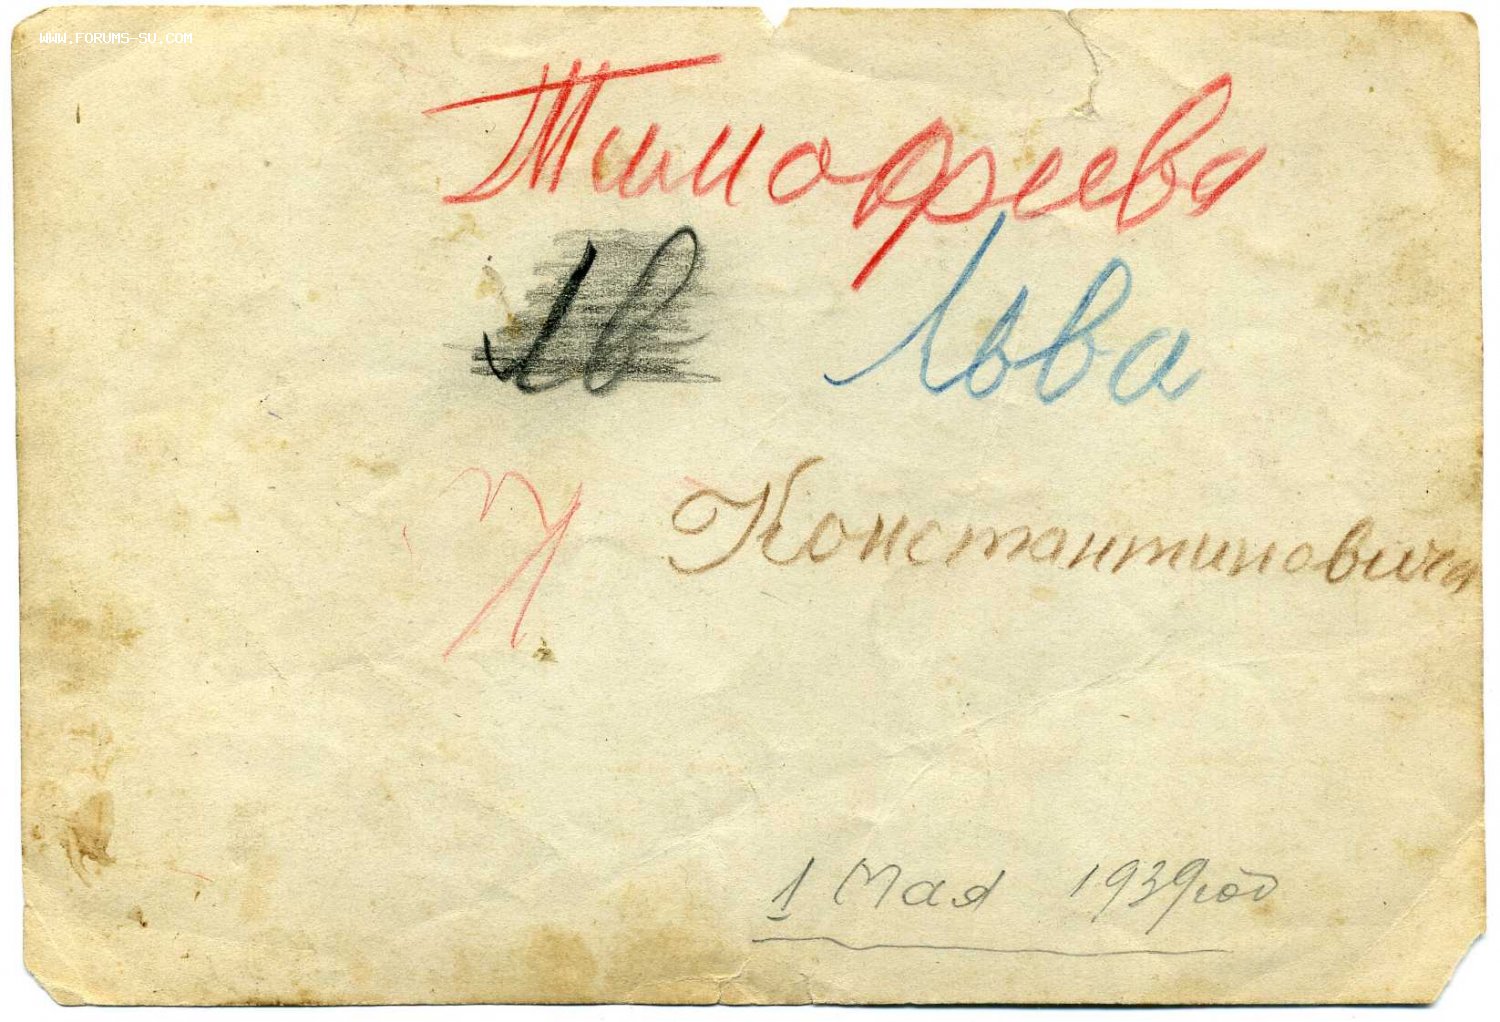 WWW.FORUMS-SU.COM
Тимофеева
Льва
Константиновича
1 Мая 1939 год